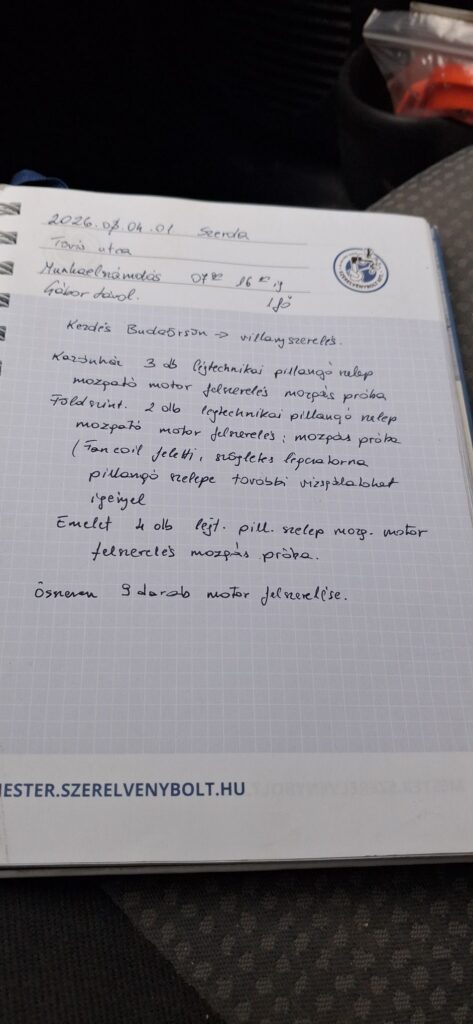 2026.04.01 Szerda
Tövis utca
Munkaelszámolás 07⁰⁰ 16⁰⁰ ig
Gábor távol. 1 fő
SZERELVÉNYBOLT.HU
Kezdés Budaörsön → villanyszerelés.
Kazánház 3 db légtechnikai pillangó szelep
mozgató motor felszerelés mozgás próba
Földszint. 2 db légtechnikai pillangó szelep
mozgató motor felszerelés, mozgás próba
(Fan coil feletti, szögletes légcsatorna
pillangó szelepe további vizsgálatokat
igényel
Emelet 4 db légt. pill. szelep mozg. motor
felszerelés mozgás próba.
Összesen 9 darab motor felszerelése.
MESTER.SZERELVENYBOLT.HU